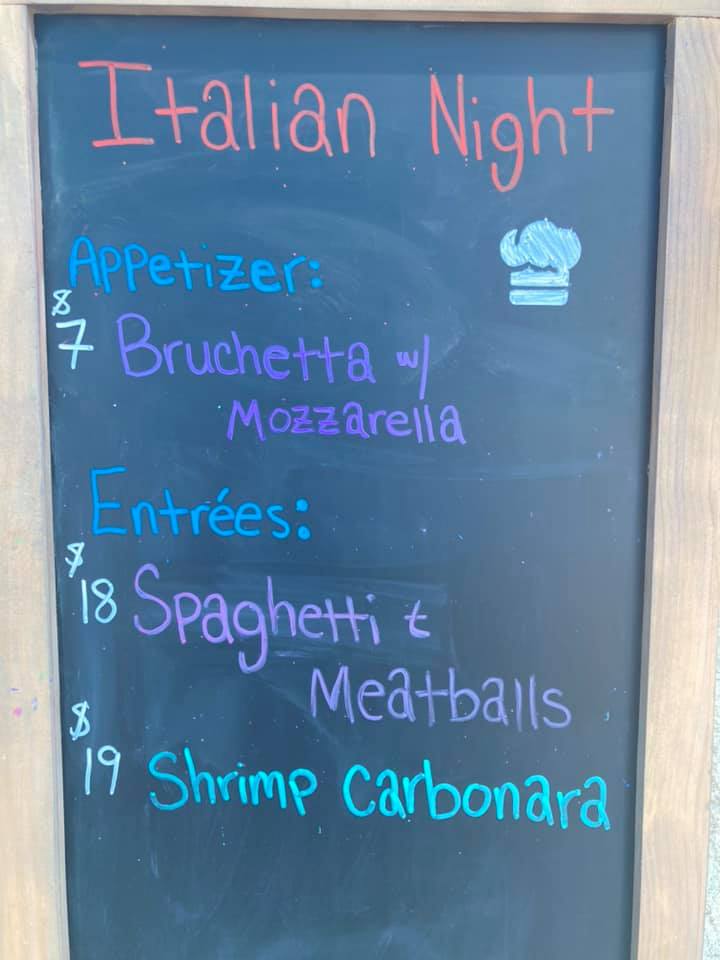 Italian Night
Appetizer:
$7 Bruchetta w/
Mozzarella
Entrées:
$18 Spaghetti &
Meatballs
$19 Shrimp Carbonara